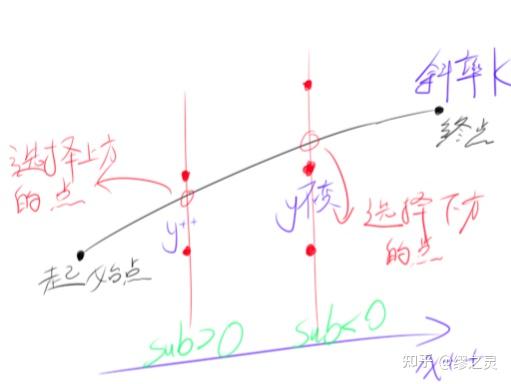 斜率K
终点
选择上方
的点
y++
y不变
选择下方
的点
起始点
sub>0
sub<0
x++
知乎 @缪之灵